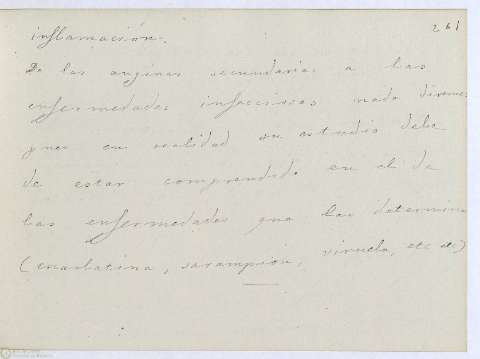 261
inflamación.
De las anginas secundarias a las
enfermedades infecciosas nada diremos
pues en realidad su estudio debe
de estar comprendido en el de
las enfermedades que las determinan
(escarlatina, sarampión, viruela, etc etc)